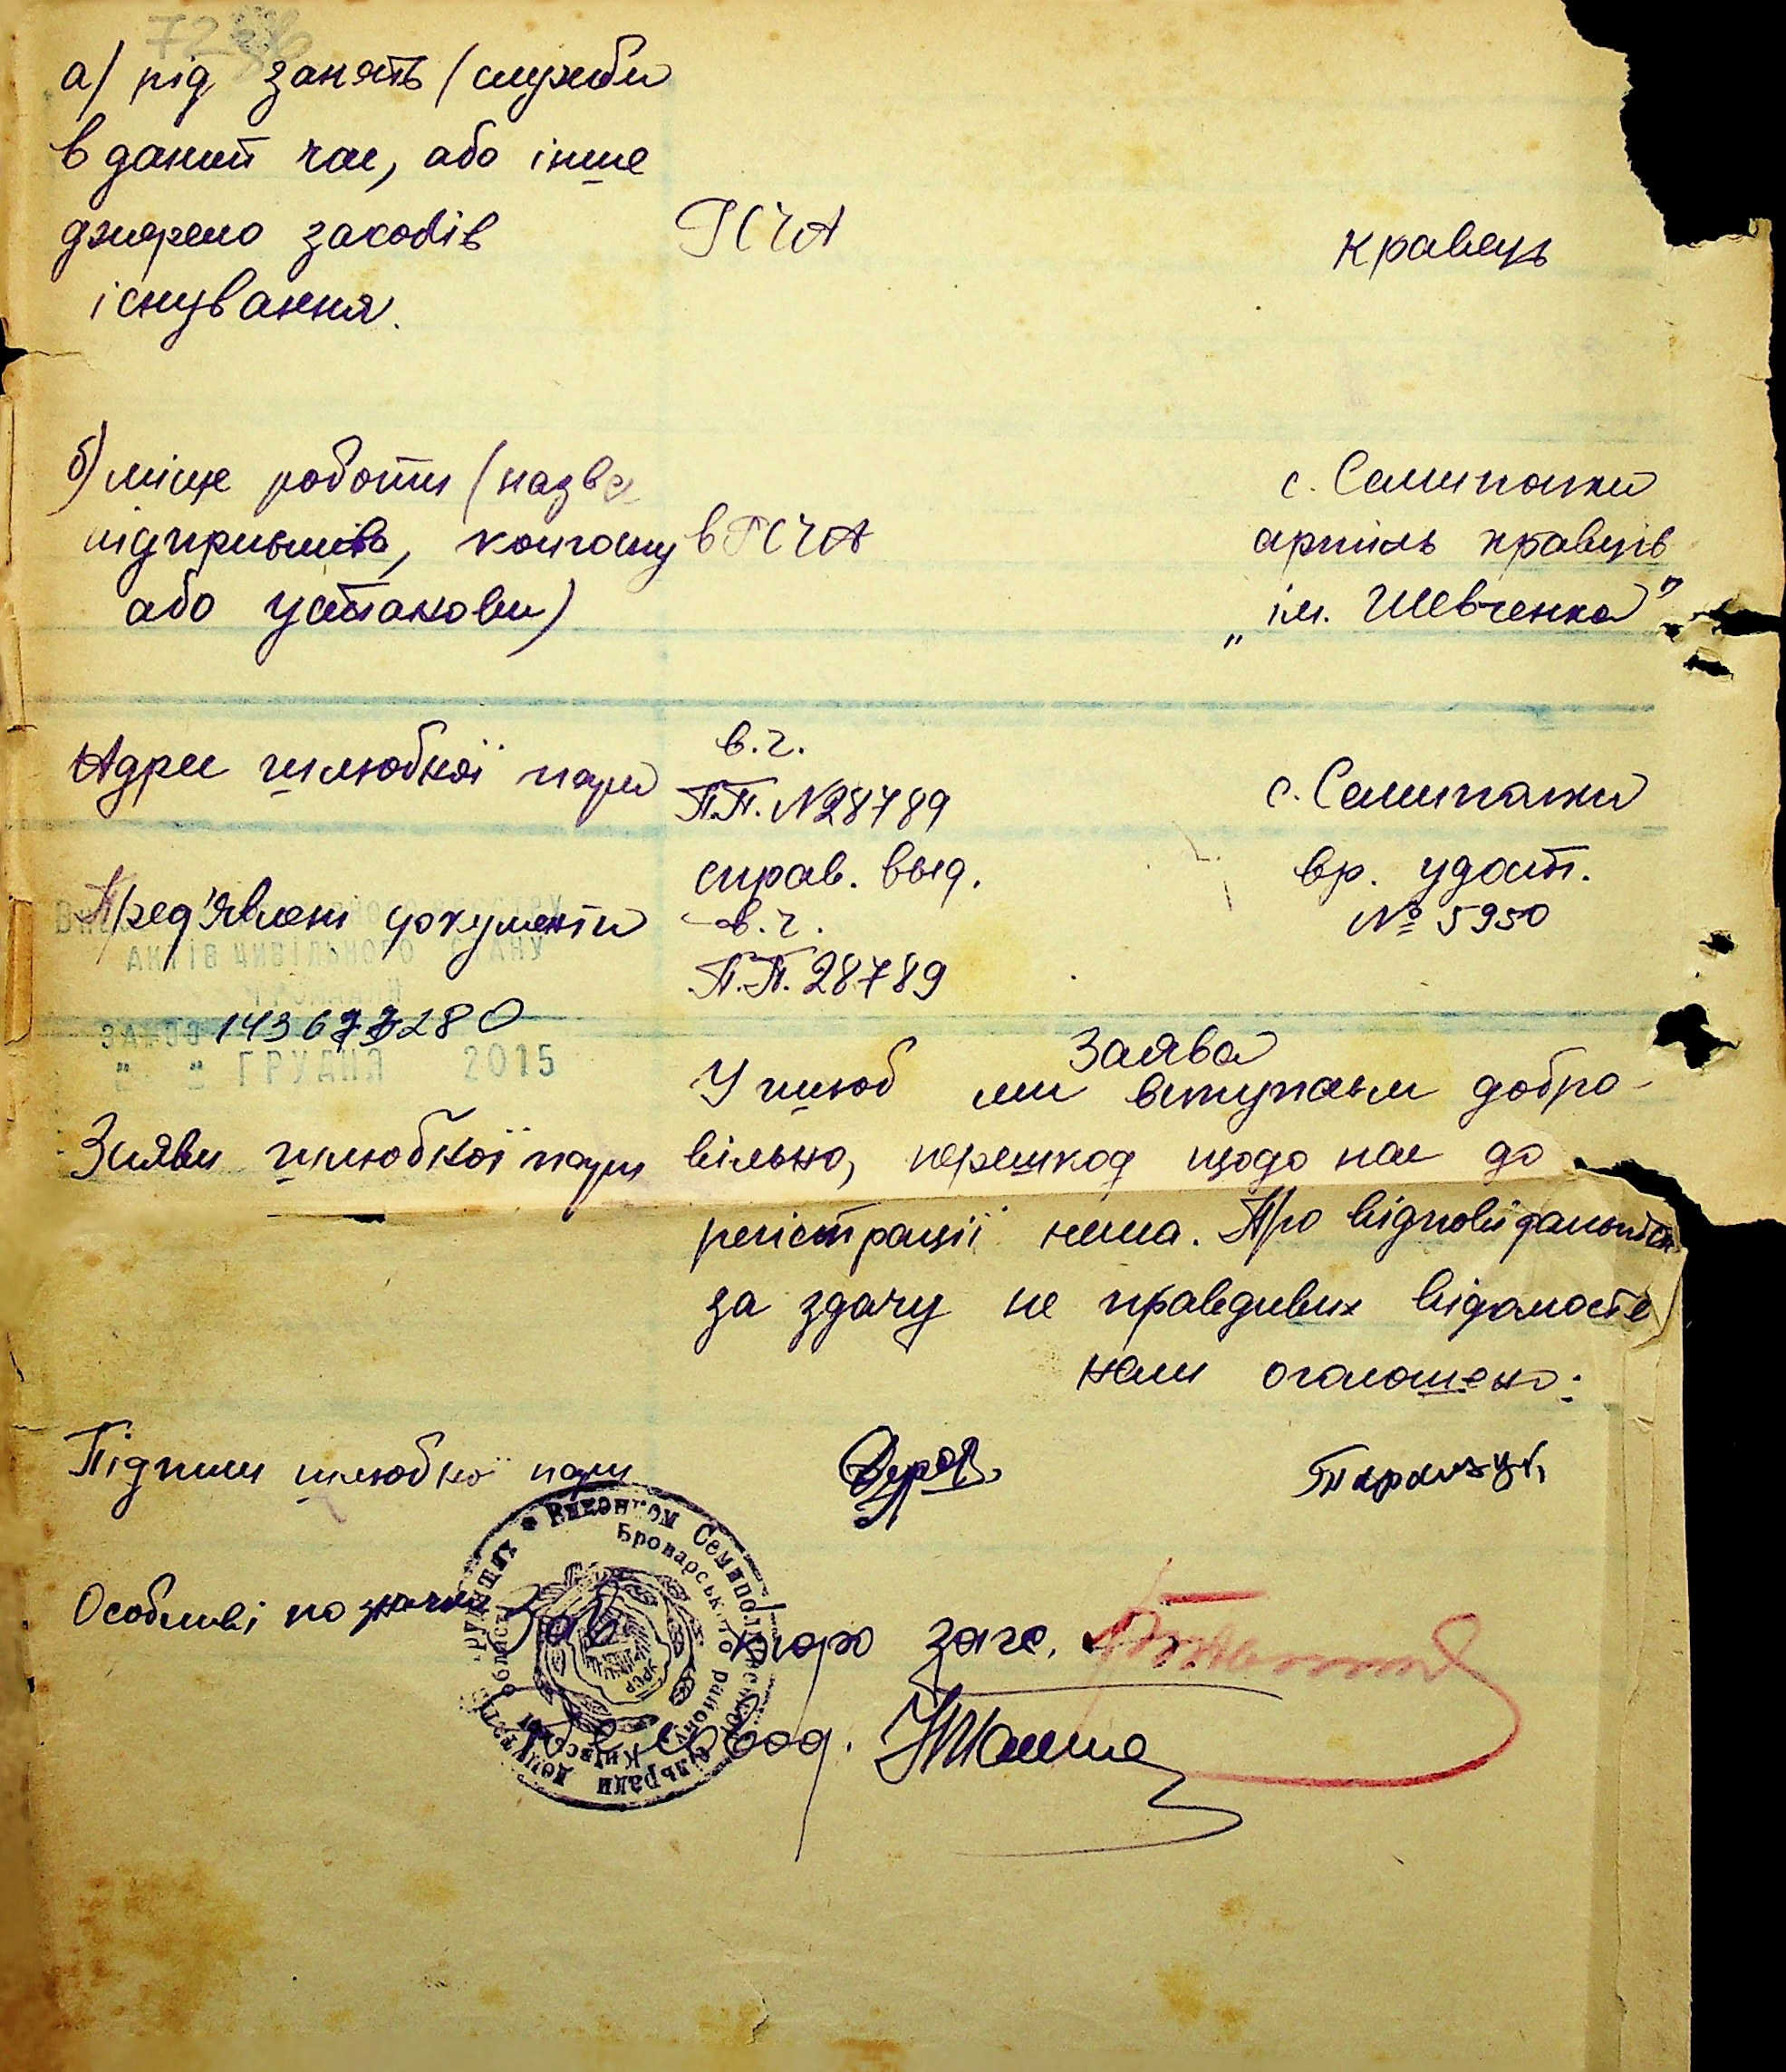 а) рід занять (служби
в даний час, або інше
джерело заходів
існування.
РСЧА
Кравець
б) місце роботи (назва
підприємства, колгоспу
або установи)
в РСЧА
с. Семиполки
артіль кравців
„ім. Шевченка”
Адрес шлюбної пари
в.ч.
П.П. №28789
с. Семиполки
Пред'явлені документи
справ. выд.
в.ч.
П.П. 28789
вр. удост.
№ 5950
АКТІВ ЦИВІЛЬНОГО СТАНУ
ГРОМАДЯН
ЗА №
ГРУДНЯ 2015
Заява
Заяви шлюбної пари
У шлюб ми вступаєм добро-
вільно, перешкод щодо нас до
регістрації нема. Про відповідальність
за здачу не правдивих відомостей
нам оголошено:
Підписи шлюбної пари
Особливі позначки
Зав бюро загс.
Виконком Семиполківської сільради депутатів трудящих
Броварського району Київської області
УРСР